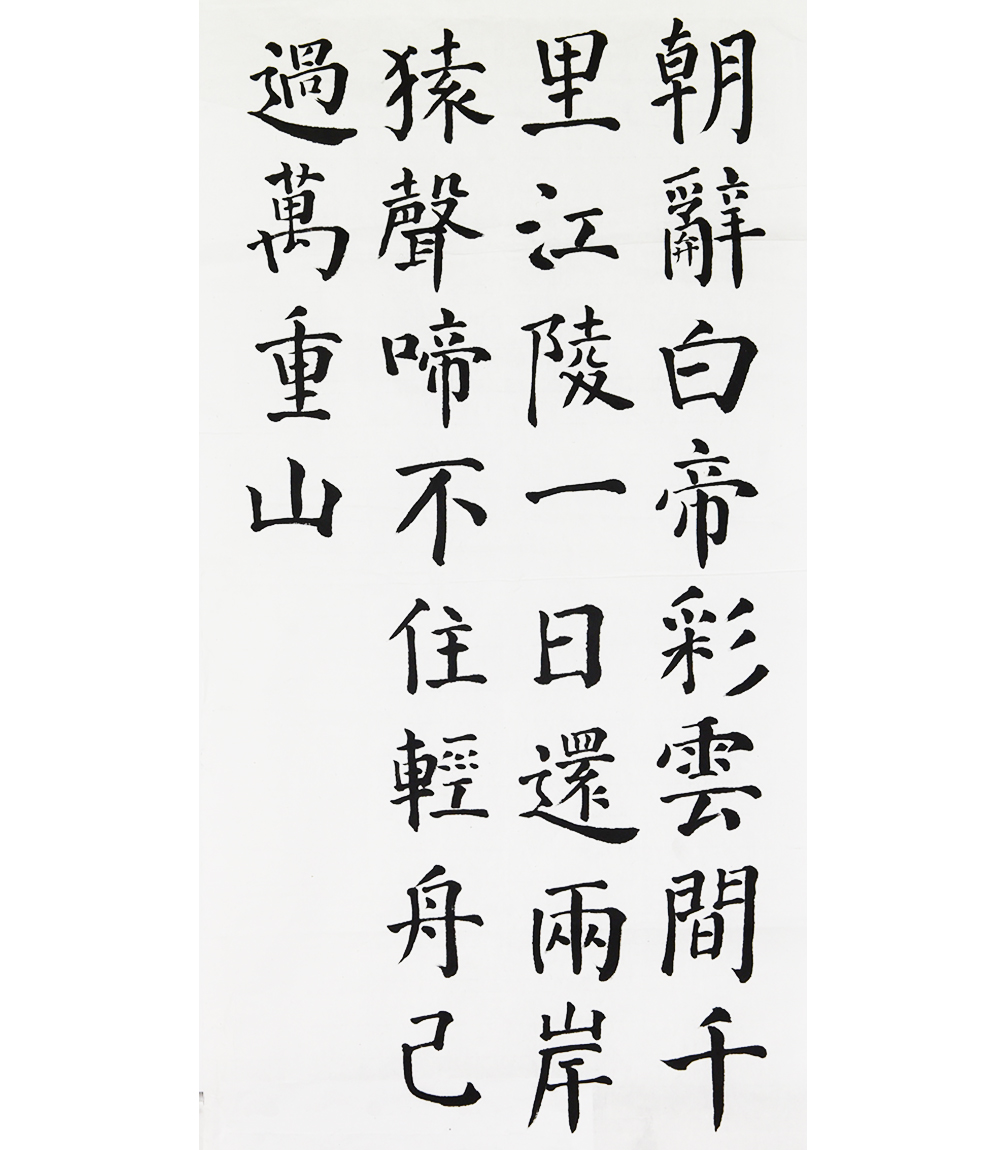 朝辭白帝彩雲間千
里江陵一日還兩岸
猿聲啼不住輕舟己
過萬重山